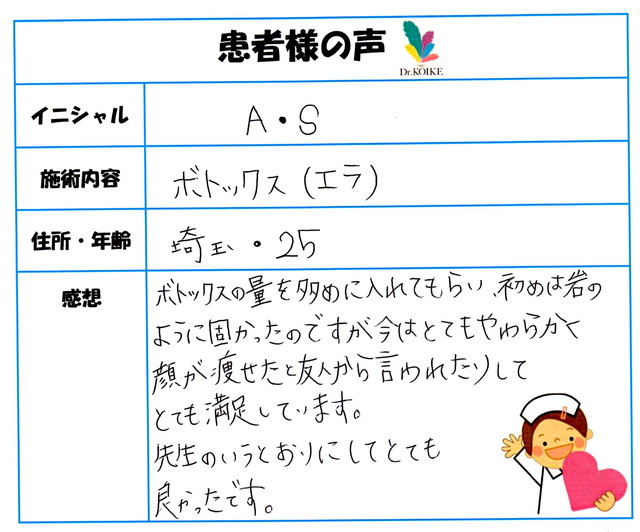 患者様の声
Dr.KOIKE
イニシャル
A・S
施術内容
ボトックス(エラ)
住所・年齢
埼玉・25
感想
ボトックスの量を多めに入れてもらい、初めは岩の
ように固かったのですが今はとてもやわらかく
顔が痩せたと友人から言われたりして
とても満足しています。
先生のいうとおりにしてとても
良かったです。